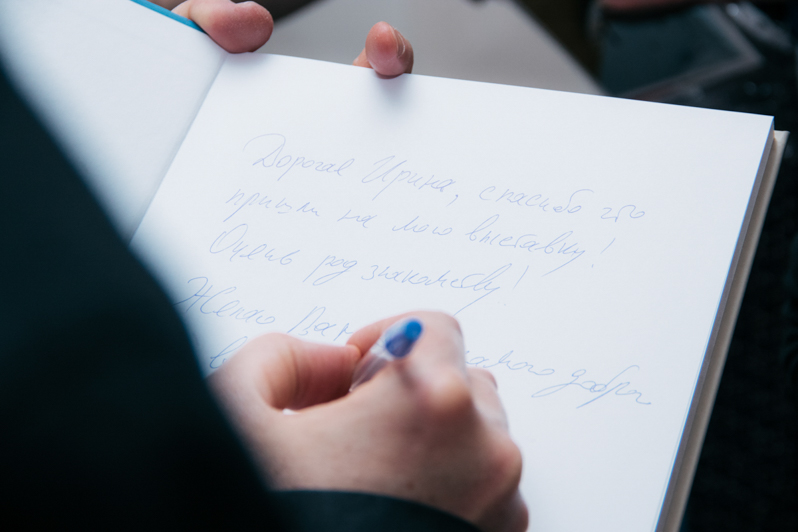 Дорогая Ирина, спасибо что
пришли на мою выставку!
Очень рад знакомству!
Желаю Вам